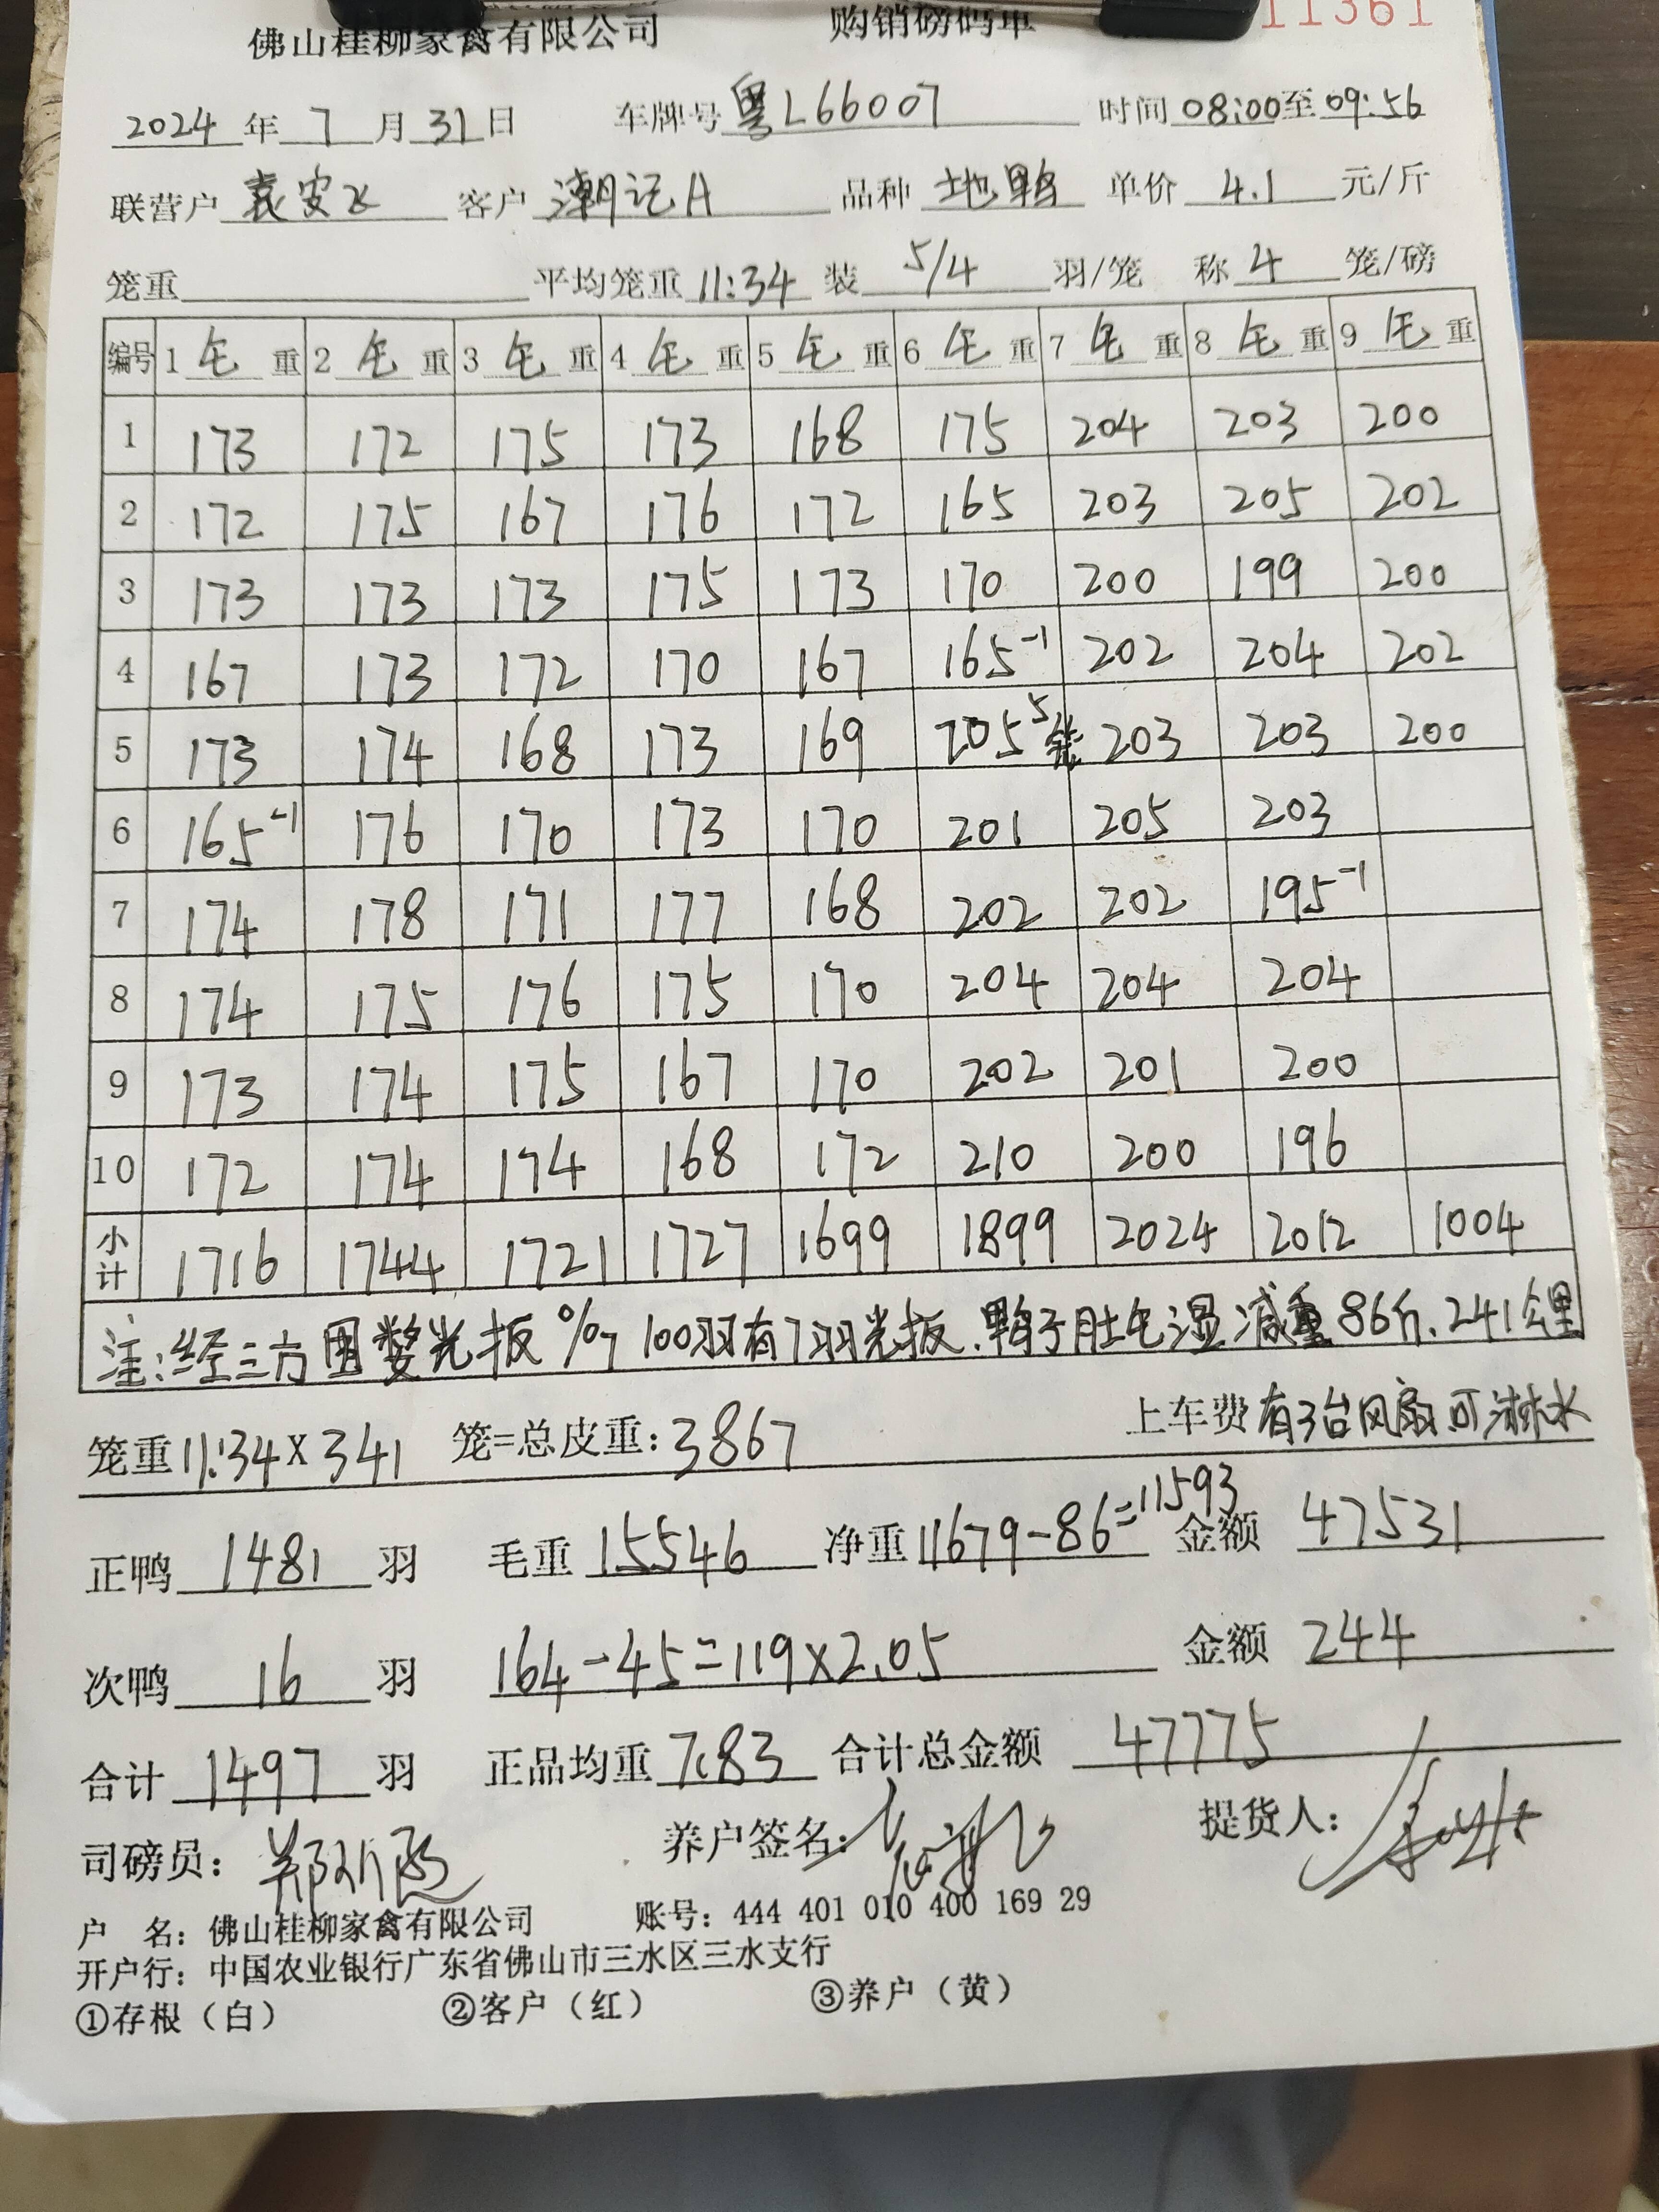 佛山桂柳家禽有限公司 购销磅码单 11361
2024 年 7 月 31 日 车牌号 粤L66007 时间 08:00 至 09:56
联营户 袁安飞 客户 潮记A 品种 地鸭 单价 4.1 元/斤
笼重 平均笼重 11:34 装 5/4 羽/笼 称 4 笼/磅
编号 1 毛 重 2 毛 重 3 毛 重 4 毛 重 5 毛 重 6 毛 重 7 毛 重 8 毛 重 9 毛 重
1 173 172 175 173 168 175 204 203 200
2 172 175 167 176 172 165 203 205 202
3 173 173 173 175 173 170 200 199 200
4 167 173 172 170 167 165-1 202 204 202
5 173 174 168 173 169 205 5笼 203 203 200
6 165-1 176 170 173 170 201 205 203
7 174 178 171 177 168 202 202 195-1
8 174 175 176 175 170 204 204 204
9 173 174 175 167 170 202 201 200
10 172 174 174 168 172 210 200 196
小计 1716 1744 1721 1727 1699 1899 2024 2012 1004
注:经三方 光扳 %7 100羽有7羽光扳.鸭子肚毛湿减重86斤.241公里
上车费 有3台风扇可淋水
笼重 11:34 x 341 笼=总皮重: 3867
正鸭 1481 羽 毛重 15546 净重 11679-86=11593 金额 47531
次鸭 16 羽 164-45=119x2.05 金额 244
合计 1497 羽 正品均重 7.83 合计总金额 47775
司磅员: 养户签名: 提货人:
户 名: 佛山桂柳家禽有限公司 账号: 444 401 010 400 169 29
开户行: 中国农业银行广东省佛山市三水区三水支行
①存根(白) ②客户(红) ③养户(黄)